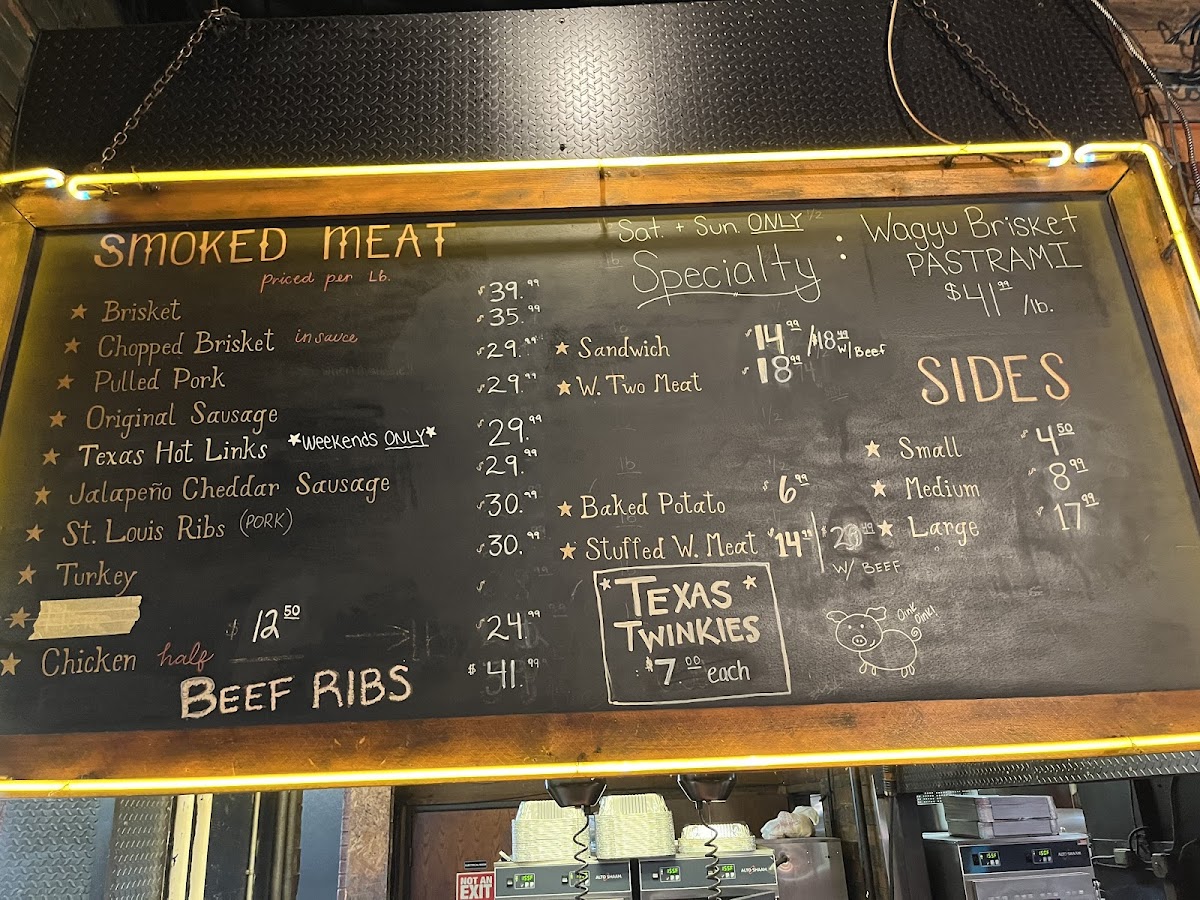 SMOKED MEAT
Priced per Lb.
★ Brisket $39.99
★ Chopped Brisket in sauce $35.99
★ Pulled Pork $29.99
★ Original Sausage $29.99
★ Texas Hot Links *Weekends ONLY* $29.99
★ Jalapeño Cheddar Sausage $29.99
★ St. Louis Ribs (PORK) $30.99
★ Turkey $30.99
★ $
★ Chicken half $12.50 $24.99
BEEF RIBS $41.99
Sat. + Sun. ONLY
Specialty :
Wagyu Brisket
PASTRAMI
$41.99 /lb.
★ Sandwich $14.99 / $18.99 w/ Beef
★ W. Two Meat $18.99
★ Baked Potato $6.99
★ Stuffed W. Meat $14.99
W/ BEEF
*TEXAS*
TWINKIES
$7.00 each
SIDES
★ Small $4.50
★ Medium $8.99
★ Large $17.99
Oink
Oink!
NOT AN
EXIT
155F
ALTO-SHAAM
155F
ALTO-SHAAM
ALTO-SHAAM